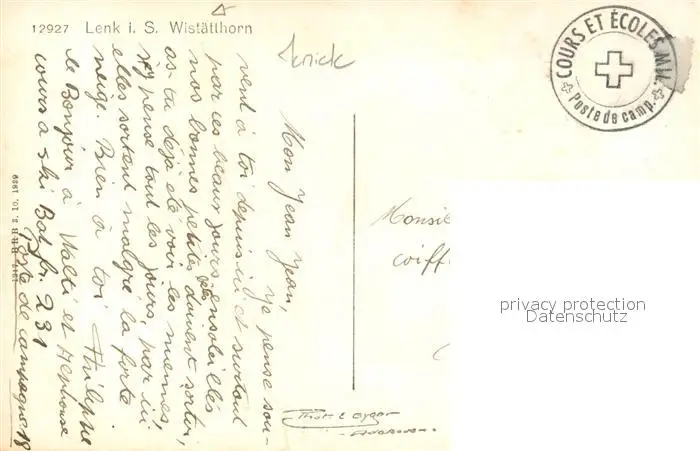 12927 Lenk i. S. Wistätthorn
knick
COURS ET ÉCOLES MIL.
Poste de camp.
Mon Jean Jean,
Je pense sou-
vent à toi depuis ici et surtout
par ces beaux jours ensoleillés
nos bonnes petites doivent sortir,
as-tu déjà été voir les miennes,
j'y pense tout les jours, par ici
elles sortent malgré la forte
neige. Bien à toi Philippe
le Bonjour à Walti et Alphonse
cours à ski Bat. fr. 231
Poste de campagne 18
1939
Monsie
coiff
privacy protection
Datenschutz